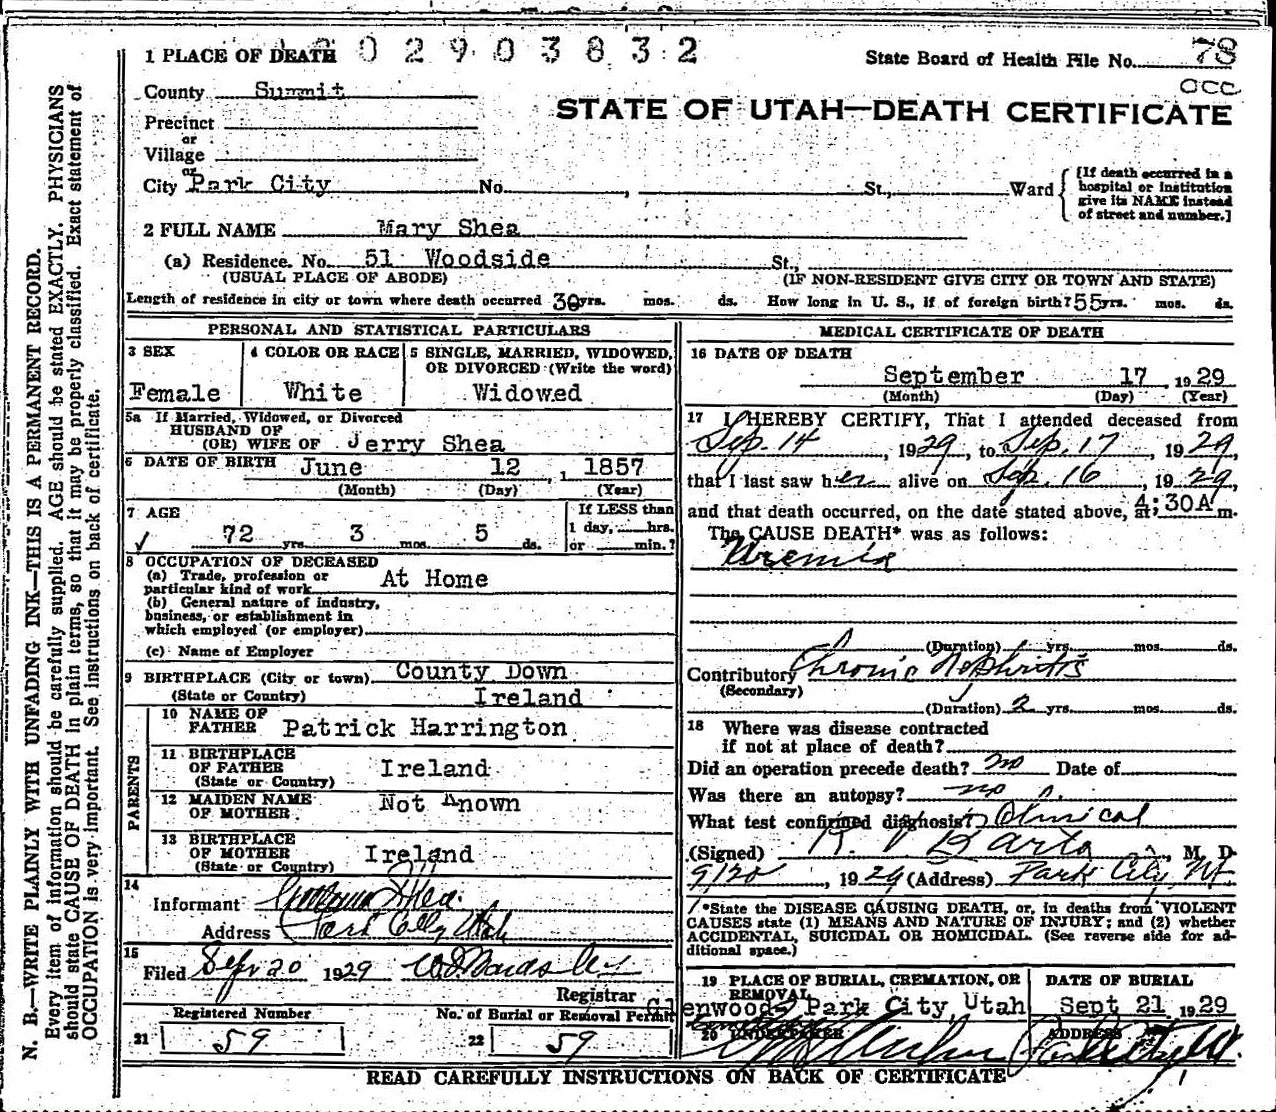 N. B.—WRITE PLAINLY WITH UNFADING INK—THIS IS A PERMANENT RECORD.
Every item of information should be carefully supplied. AGE should be stated EXACTLY. PHYSICIANS
should state CAUSE OF DEATH in plain terms, so that it may be properly classified. Exact statement of
OCCUPATION is very important. See instructions on back of certificate.
1 PLACE OF DEATH 0 2 9 0 3 8 3 2
State Board of Health File No. 78
occ
County Summit
STATE OF UTAH—DEATH CERTIFICATE
Precinct
or
Village
or
City Park City No. , St., Ward
[If death occurred in a
hospital or institution
give its NAME instead
of street and number.]
2 FULL NAME Mary Shea
(a) Residence. No. 51 Woodside St.,
(USUAL PLACE OF ABODE) (IF NON-RESIDENT GIVE CITY OR TOWN AND STATE)
Length of residence in city or town where death occurred 30 yrs. mos. ds. How long in U. S., if of foreign birth? 55 yrs. mos. ds.
PERSONAL AND STATISTICAL PARTICULARS
3 SEX
Female
4 COLOR OR RACE
White
5 SINGLE, MARRIED, WIDOWED,
OR DIVORCED (Write the word)
Widowed
5a If Married, Widowed, or Divorced
HUSBAND OF
(OR) WIFE OF Jerry Shea
6 DATE OF BIRTH June 12, 1857
(Month) (Day) (Year)
7 AGE
72 yrs. 3 mos. 5 ds.
If LESS than
1 day, hrs.
or min.?
8 OCCUPATION OF DECEASED
(a) Trade, profession or
particular kind of work At Home
(b) General nature of industry,
business, or establishment in
which employed (or employer)
(c) Name of Employer
9 BIRTHPLACE (City or town) County Down
(State or Country) Ireland
PARENTS
10 NAME OF
FATHER Patrick Harrington
11 BIRTHPLACE
OF FATHER Ireland
(State or Country)
12 MAIDEN NAME
OF MOTHER Not Known
13 BIRTHPLACE
OF MOTHER Ireland
(State or Country)
14
Informant Shea
Address Park City Utah
15
Filed Sept 20 1929
Registrar
Registered Number
21 59
No. of Burial or Removal Permit
22 59
MEDICAL CERTIFICATE OF DEATH
16 DATE OF DEATH
September 17, 1929
(Month) (Day) (Year)
17 I HEREBY CERTIFY, That I attended deceased from
Sep. 14, 1929, to Sep. 17, 1929,
that I last saw her alive on Sep. 16, 1929,
and that death occurred, on the date stated above, at 4:30A m.
The CAUSE DEATH* was as follows:
Uremia
(Duration) yrs. mos. ds.
Contributory Chronic Nephritis
(Secondary)
(Duration) 2 yrs. mos. ds.
18 Where was disease contracted
if not at place of death?
Did an operation precede death? no Date of
Was there an autopsy? no
What test confirmed diagnosis? Clinical
(Signed) R. V Barta, M. D.
9/20, 1929 (Address) Park City, Ut.
*State the DISEASE CAUSING DEATH, or, in deaths from VIOLENT
CAUSES state (1) MEANS AND NATURE OF INJURY; and (2) whether
ACCIDENTAL, SUICIDAL OR HOMICIDAL. (See reverse side for ad-
ditional space.)
19 PLACE OF BURIAL, CREMATION, OR
REMOVAL
Glenwood, Park City Utah
DATE OF BURIAL
Sept 21, 1929
20 UNDERTAKER
ADDRESS
Park City Ut.
READ CAREFULLY INSTRUCTIONS ON BACK OF CERTIFICATE